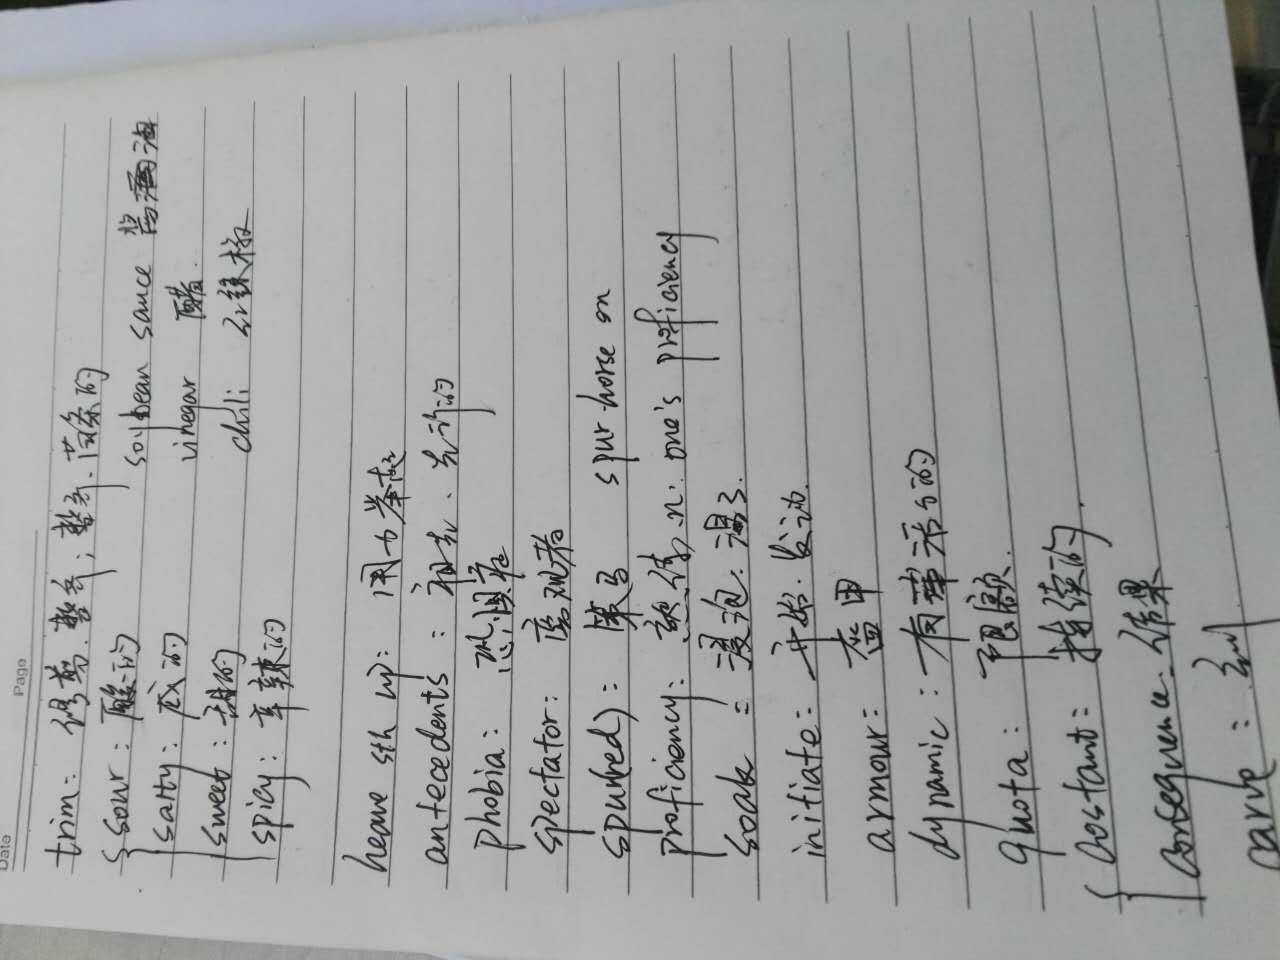 Date
Page
trim: 修剪.整齐; 整齐.苗条的
sour: 酸的 soybean sauce 酱油
salty: 咸的 vinegar 醋.
sweet: 甜的 chili 红辣椒
spicy: 辛辣的
heave sth up: 用力举起
antecedents:
phobia: 恐惧症
spectator: 旁观者
spur(ed): 策马 spur horse on
proficiency: n. one's proficiency
soak = 浸泡.湿了.
initiate: 开始.发动.
armour: 盔甲
dynamic: 有活力的
quota: 限额.
costant: 持续的
consequence. 结果